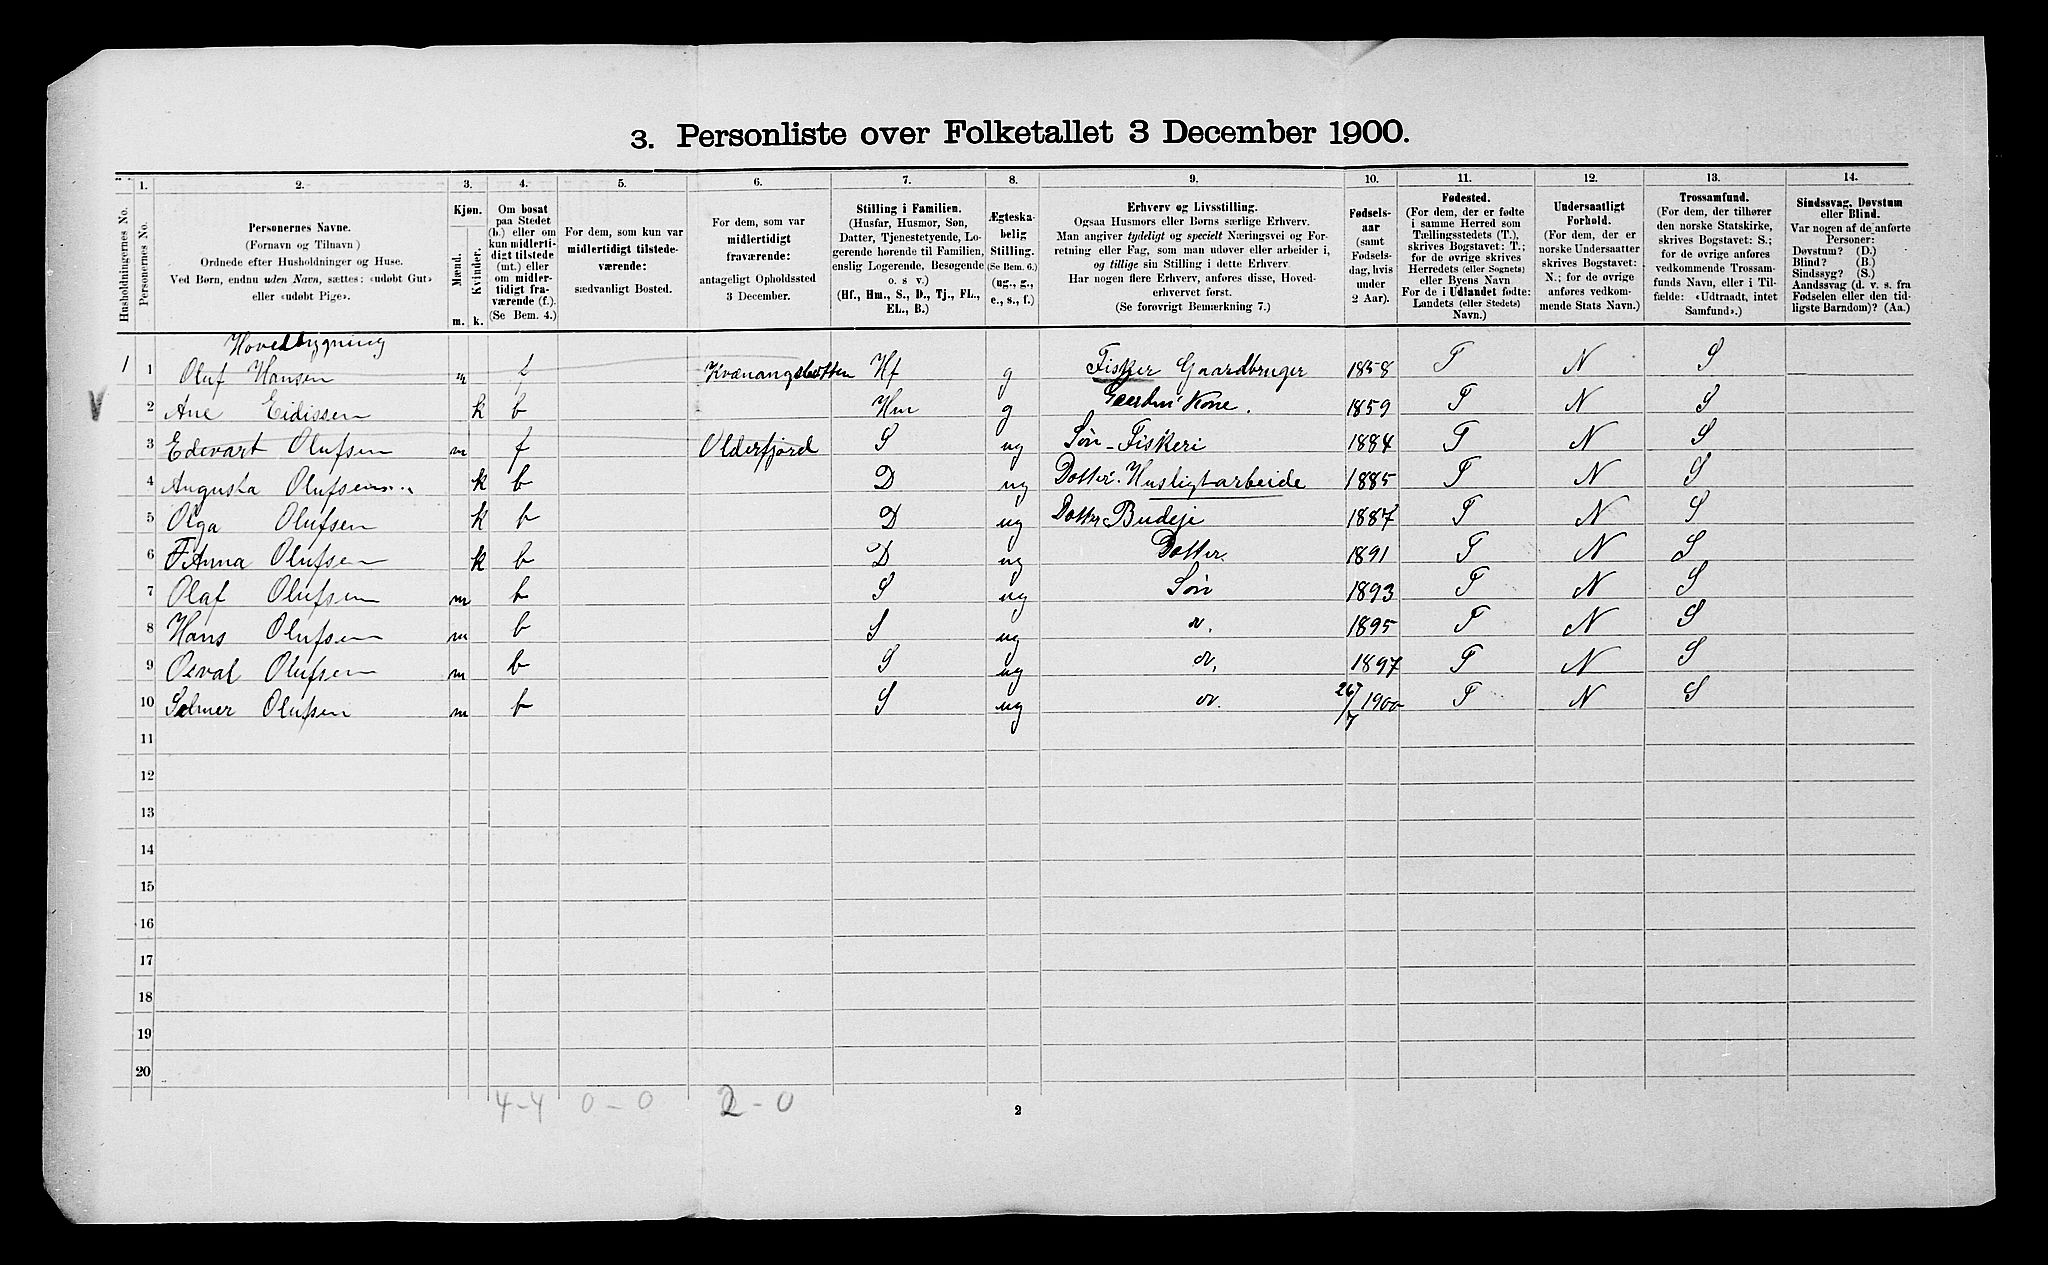 3. Personliste over Folketallet 3 December 1900.
Husholdningernes No.
1.
Personernes No.
2.
Personernes Navne.
(Fornavn og Tilnavn)
Ordnede efter Husholdninger og Huse.
Ved Børn, endnu uden Navn, sættes: «udøbt Gut»
eller «udøbt Pige».
3.
Kjøn.
Mænd.
Kvinder.
m. k.
4.
Om bosat
paa Stedet
(b.) eller om
kun midlerti-
digt tilstede
(mt.) eller
om midler-
tidigt fra-
værende (f.).
(Se Bem. 4.)
5.
For dem, som kun var
midlertidigt tilstede-
værende:
sædvanligt Bosted.
6.
For dem, som var
midlertidigt
fraværende:
antageligt Opholdssted
3 December.
7.
Stilling i Familien.
(Husfar, Husmor, Søn,
Datter, Tjenestetyende, Lo-
gerende hørende til Familien,
enslig Logerende, Besøgende
o. s v.)
(Hf., Hm., S., D., Tj., FL.,
EL., B.)
8.
Ægteska-
belig
Stilling.
(Se Bem. 6.)
(ug., g.,
e., s., f.)
9.
Erhverv og Livsstilling.
Ogsaa Husmors eller Børns særlige Erhverv.
Man angiver tydeligt og specielt Næringsvei og For-
retning eller Fag, som man udover eller arbeider i,
og tillige sin Stilling i dette Erhverv.
Har nogen flere Erhverv, anføres disse, Hoved-
erhvervet først.
(Se forøvrigt Bemærkning 7.)
10.
Fødsels-
aar
(samt
Fødsels-
dag, hvis
under
2 Aar).
11.
Fødested.
(For dem, der er fødte
i samme Herred som
Tællingsstedets (T.),
skrives Bogstavet: T.;
for de øvrige skrives
Herredets (eller Sognets)
eller Byens Navn
For de i Udlandet fødte:
Landets (eller Stedets)
Navn.)
12.
Undersaatligt
Forhold.
(For dem, der er
norske Undersaatter
skrives Bogstavet:
N.; for de øvrige
anføres vedkom-
mende Stats Navn.)
13.
Trossamfund.
(For dem, der tilhører
den norske Statskirke,
skrives Bogstavet: S.;
for de øvrige anføres
vedkommende Trossam-
funds Navn, eller i Til-
fælde: «Udtraadt, intet
Samfund».)
14.
Sindssvag, Døvstum
eller Blind.
Var nogen af de anførte
Personer:
Døvstum? (D.)
Blind? (B.)
Sindssyg? (S.)
Aandssvag (d. v. s. fra
Fødselen eller den tid-
ligste Barndom)? (Aa.)
Hovedbygning
1 1 Oluf Hansen m f Kvænangsbotten Hf g Fisker Gaardbruger 1858 T N S
2 Ane Eidissen k b Hm g Kone. 1859 T N S
3 Edevart Olufsen m f Olderfjord S ug Søn - Fiskeri 1884 T N S
4 Augusta Olufsen k b D ug Datter. Husligtarbeide 1885 T N S
5 Olga Olufsen k b D ug Datter Budeje 1887 T N S
6 Anna Olufsen k b D ug Datter 1891 T N S
7 Olaf Olufsen m b S ug Søn 1893 T N S
8 Hans Olufsen m b S ug 1895 T N S
9 Osval Olufsen m b S ug 1897 T N S
10 Selmer Olufsen m b S ug 26/7 1900 T N S
11
12
13
14
15
16
17
18
19
20
4-4 0-0 2-0
2